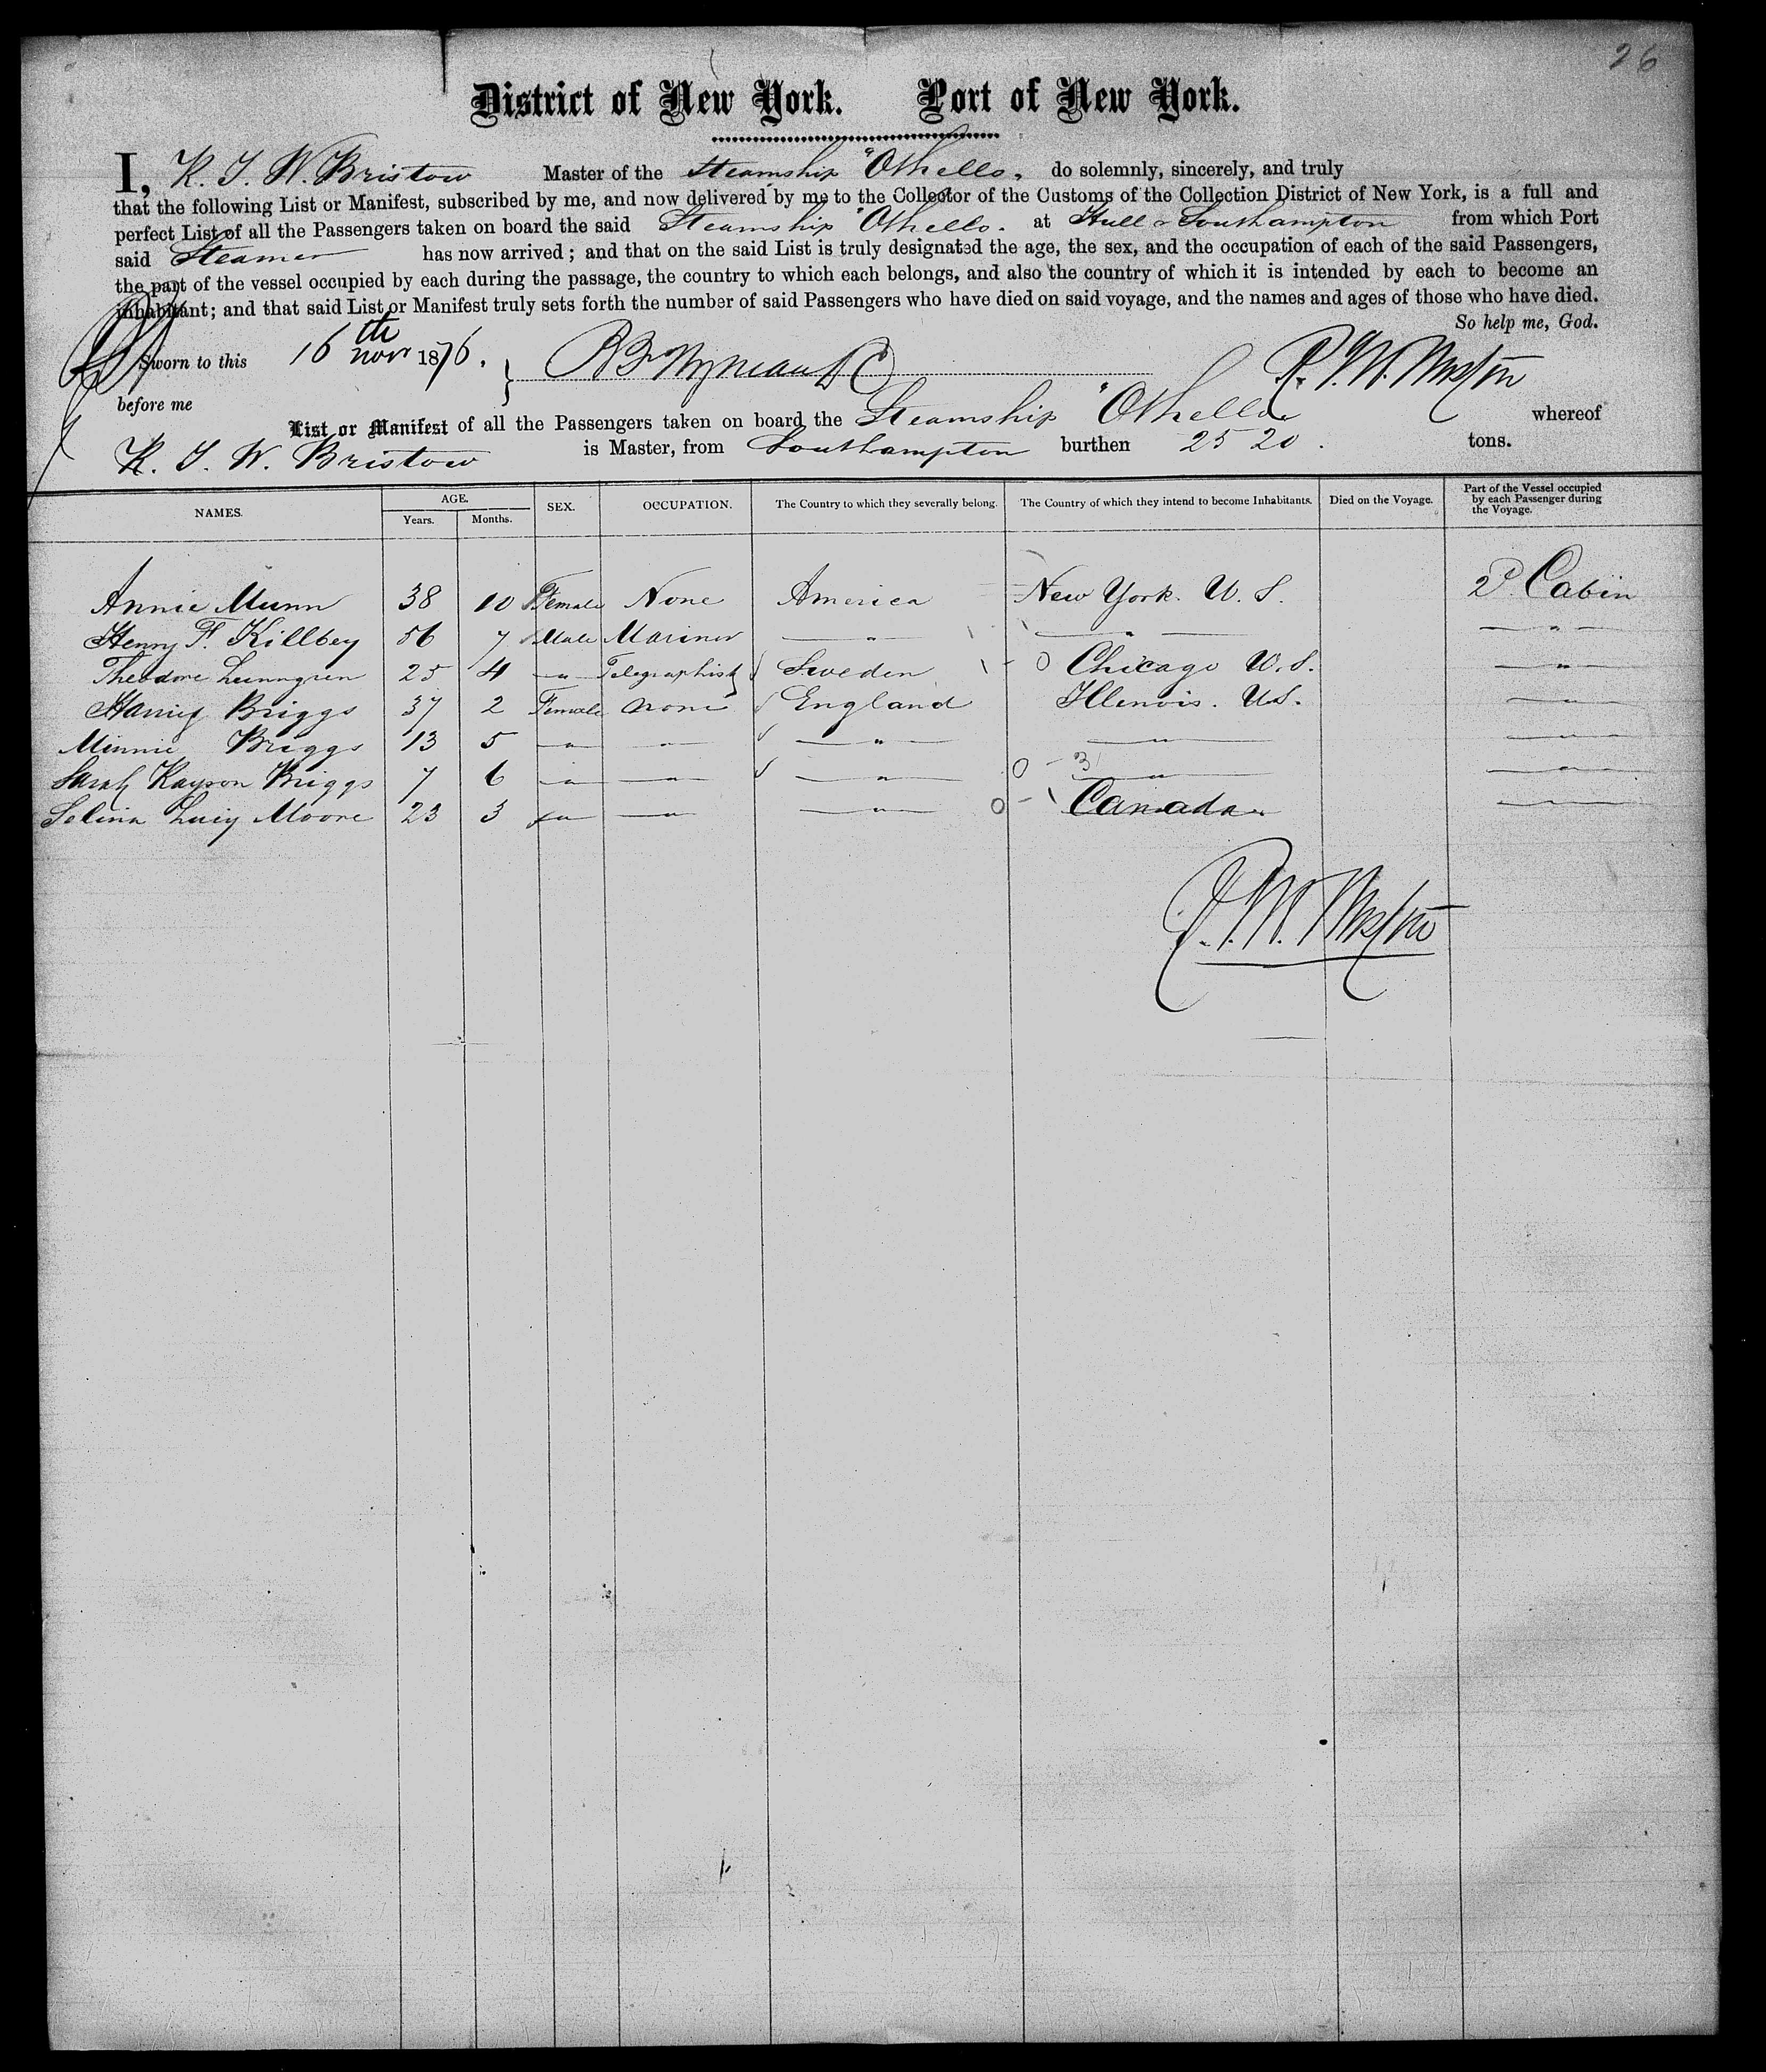 26
District of New York. Port of New York.
I, R. T. W. Bristow Master of the Steamship "Othello, do solemnly, sincerely, and truly
that the following List or Manifest, subscribed by me, and now delivered by me to the Collector of the Customs of the Collection District of New York, is a full and
perfect List of all the Passengers taken on board the said Steamship "Othello. at Hull & Southampton from which Port
said Steamer has now arrived; and that on the said List is truly designated the age, the sex, and the occupation of each of the said Passengers,
the part of the vessel occupied by each during the passage, the country to which each belongs, and also the country of which it is intended by each to become an
inhabitant; and that said List or Manifest truly sets forth the number of said Passengers who have died on said voyage, and the names and ages of those who have died.
So help me, God.
Sworn to this 16th Nov 1876.
before me
List or Manifest of all the Passengers taken on board the Steamship "Othello whereof
R. T. W. Bristow is Master, from Southampton burthen 2520. tons.
NAMES. AGE. Years. Months. SEX. OCCUPATION. The Country to which they severally belong. The Country of which they intend to become Inhabitants. Died on the Voyage. Part of the Vessel occupied by each Passenger during the Voyage.
Annie Munn 38 10 Female None America New York. U. S. 2d Cabin
Henry F. Killbey 56 7 Male Mariner " " "
Theodore Lunngren 25 4 " Telegraphist Sweden 0 Chicago U. S. "
Harriet Briggs 37 2 Female None England Illenois. U.S. "
Minnie Briggs 13 5 " " " " "
Sarah Kayson Briggs 7 6 " " " 0 3 " "
Selina Lucy Moore 23 3 " " " 0 Canada. "